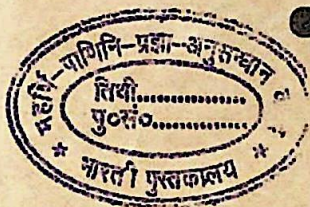 महर्षि-पाणिनि-प्रज्ञा-अनुसन्धान
तिथी.................
पु०सं०.................
* भारती पुस्तकालय *